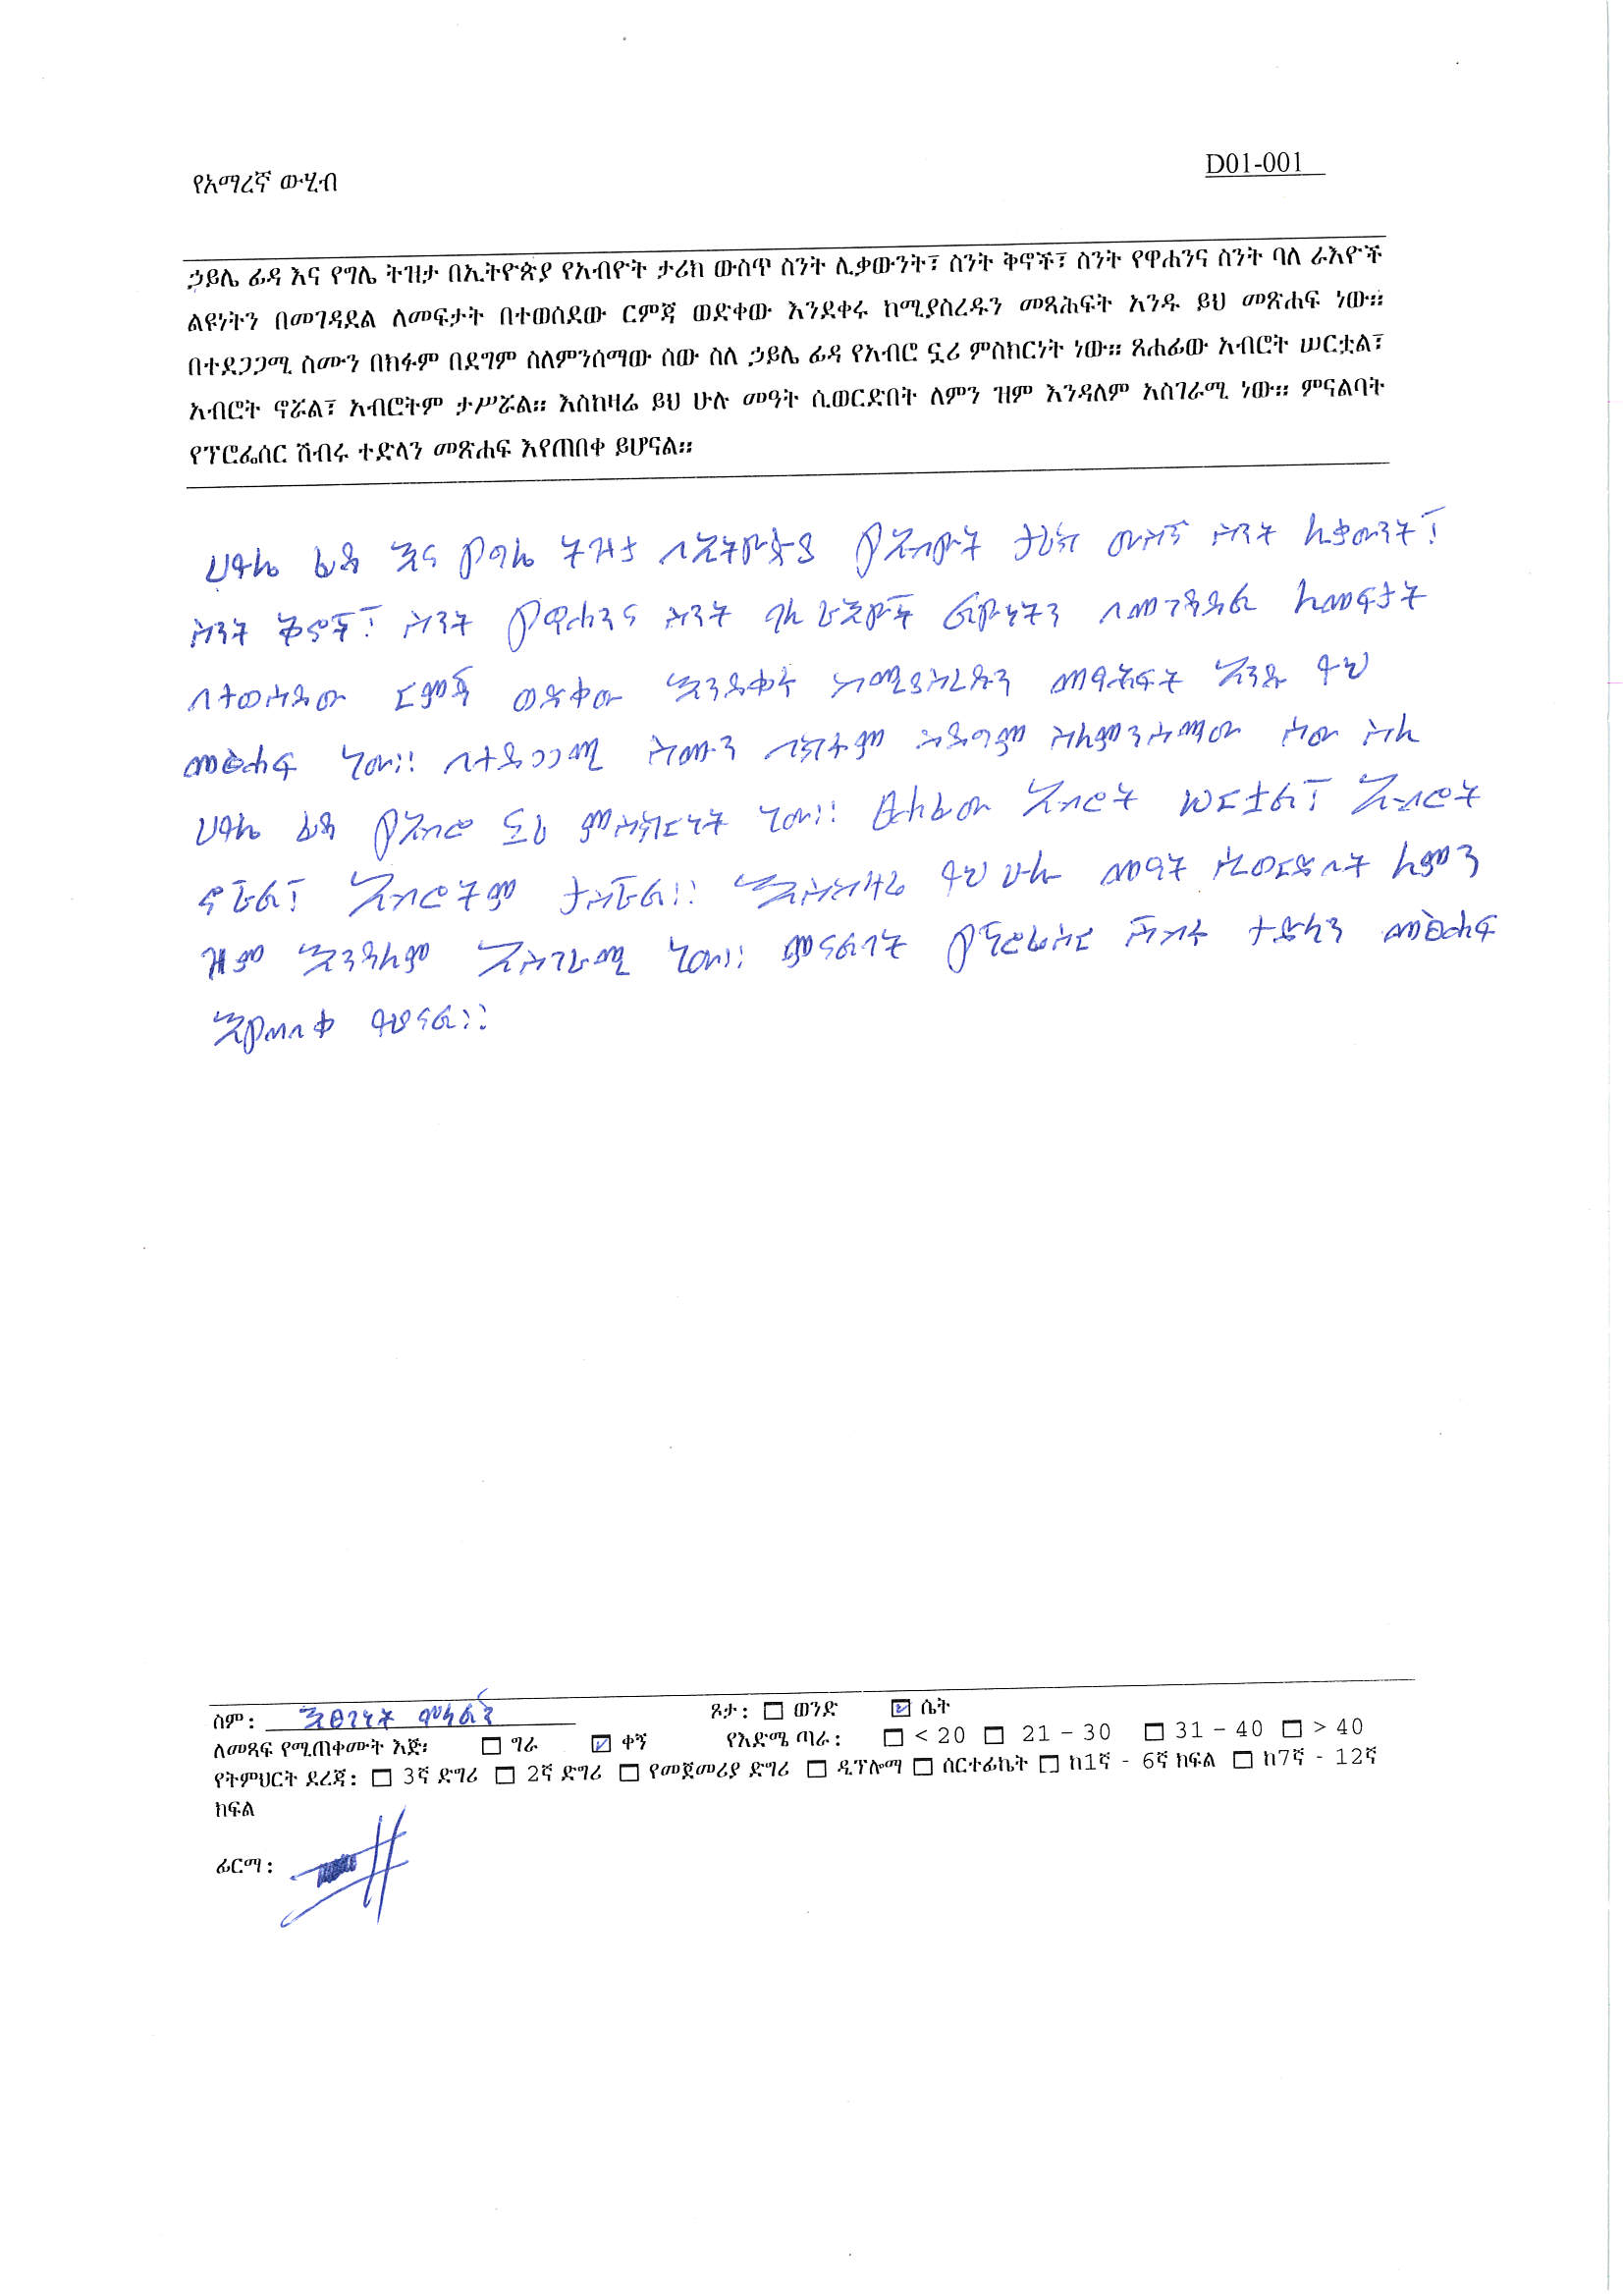 የአማረኛ ውሂብ
D01-001
ኃይሌ ፊዳ እና የግሌ ትዝታ በኢትዮጵያ የአብዮት ታሪክ ውስጥ ስንት ሊቃውንት፣ ስንት ቅኖች፣ ስንት የዋሐንና ስንት ባለ ራእዮች
ልዩነትን በመገዳደል ለመፍታት በተወሰደው ርምጃ ወድቀው እንደቀሩ ከሚያስረዱን መጻሕፍት አንዱ ይህ መጽሐፍ ነው።
በተደጋጋሚ ስሙን በክፉም በደግም ስለምንሰማው ሰው ስለ ኃይሌ ፊዳ የአብሮ ኗሪ ምስክርነት ነው። ጸሐፊው አብሮት ሠርቷል፣
አብሮት ኖሯል፣ አብሮትም ታሥሯል። እስከዛሬ ይህ ሁሉ መዓት ሲወርድበት ለምን ዝም እንዳለም አስገራሚ ነው። ምናልባት
የፕሮፌሰር ሽብሩ ተድላን መጽሐፍ እየጠበቀ ይሆናል።
ሀይሌ ፊዳ እና የግሌ ትዝታ በኢትዮጵያ የአብዮት ታሪክ ውስጥ ስንት ሊቃውንት፣
ስንት ቅኖች፣ ስንት የዋሐንና ስንት ባለ ራእዮች ልዩነትን በመገዳደል ለመፍታት
በተወሰደው ርምጃ ወድቀው እንደቀሩ ከሚያስረዱን መጣሕፍት አንዱ ይህ
መፅሐፍ ነው። በተደጋጋሚ ስሙን በክፉም በደግም ስለምንሰማው ሰው ስለ
ሀይሌ ፊዳ የአብሮ ኗሪ ምስክርነት ነው። ፀሐፊው አብሮት ሠርቷል፣ አብሮት
ኖሯል፣ አብሮትም ታስሯል። እስከዛሬ ይህ ሁሉ መዓት ሲወርድበት ለምን
ዝም እንዳለም አስገራሚ ነው። ምናልባት የፕሮፌሰር ሽብሩ ተድላን መፅሐፍ
እየጠበቀ ይሆናል።
ስም: ጾታ: ወንድ ሴት
ለመጻፍ የሚጠቀሙት እጅ፡ ግራ ቀኝ የእድሜ ጣራ: < 20 21 – 30 31 – 40 > 40
የትምህርት ደረጃ: 3ኛ ድግሪ 2ኛ ድግሪ የመጀመሪያ ድግሪ ዲፕሎማ ሰርተፊኬት ከ1ኛ - 6ኛ ክፍል ከ7ኛ - 12ኛ
ክፍል
ፊርማ: